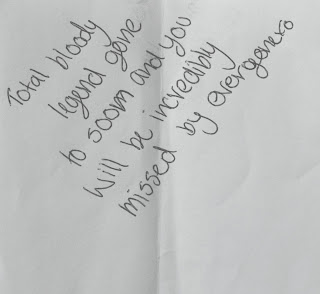 Total bloody
legend gone
to soom and you
will be incredibly
missed by everyone xo